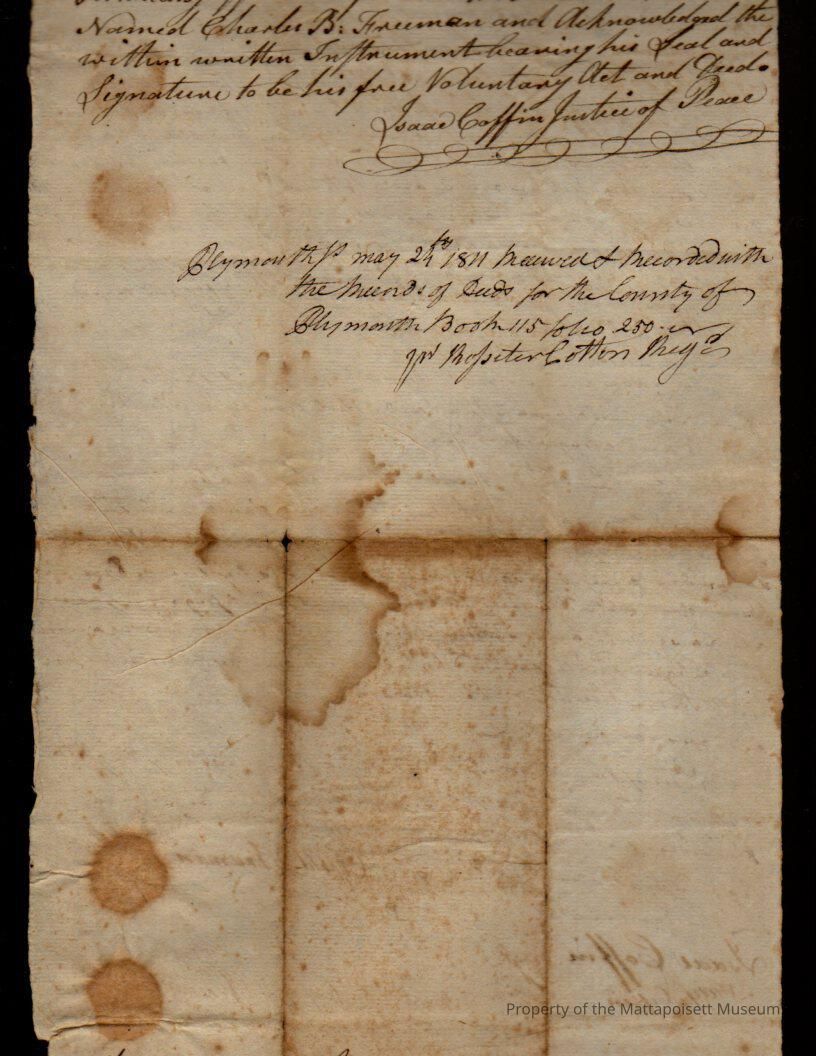 Named Charles B: Freeman and Acknowledged the
within written Instrument bearing his Seal and
Signature to be his free Voluntary Act and Deed.
Isaac Coffin Justice of Peace
Plymouth ss may 24th 1811 Received & Recorded with
the Records of Deeds for the County of
Plymouth Book 115 folio 250.
pr Rossiter Cotton Regr
Isaac Coffin
Property of the Mattapoisett Museum